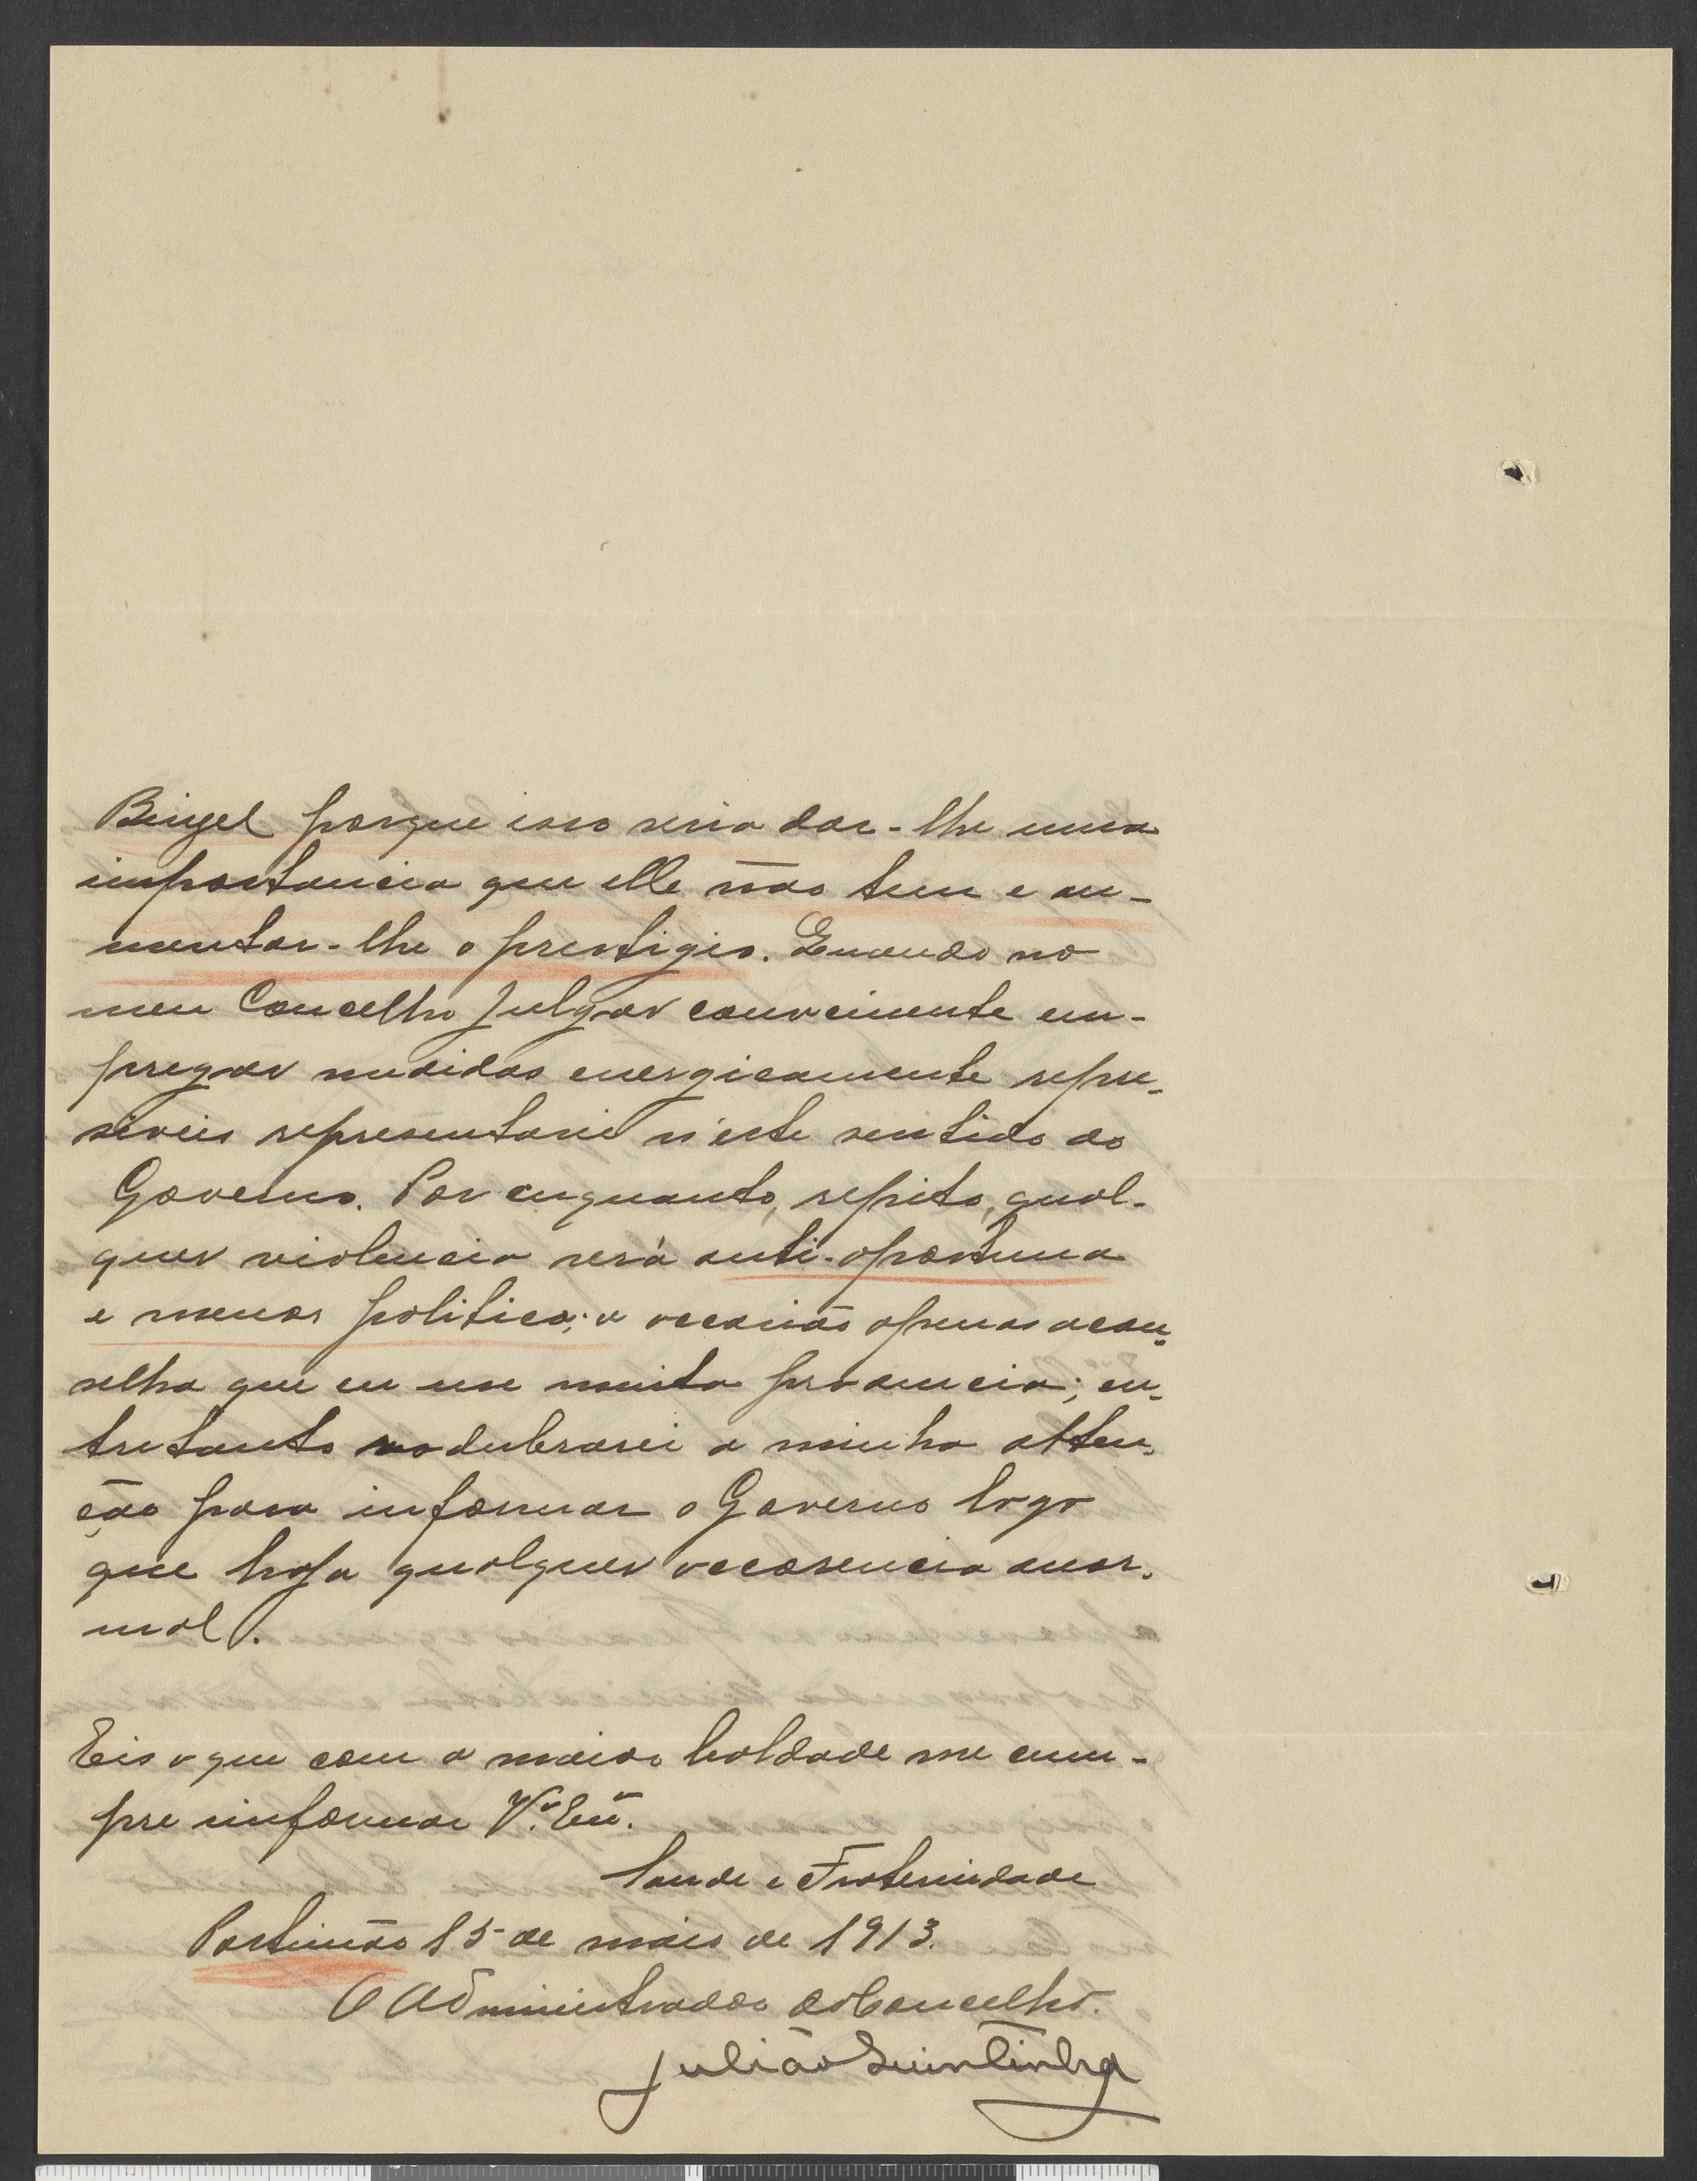 Bingel porque isso seria dar-lhe uma
importancia que elle não tem e au-
mentar-lhe o prestigio. Quando no
meu Concelho julgar conveniente em-
pregar medidas energicamente repre-
siveis representarei n'este sentido ao
Governo. Por enquanto, repito, qual-
quer violencia será anti-oportuna
e menos politica; a occasião apenas acon-
selha que eu use muita prudencia; en-
tretanto redubrarei a minha atten-
ção para informar o Governo logo
que haja qualquer occorencia anor-
mal.
Eis o que com a maior lealdade me cum-
pre informar V.ª Exª.
Saude e Fraternidade
Portimão 15 de maio de 1913.
O Administrador do Concelho.
Julião Quintinha